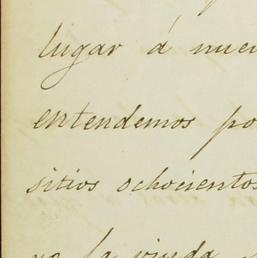 lugar á nue
entendemos po
sitios ochocientos
va la viuda